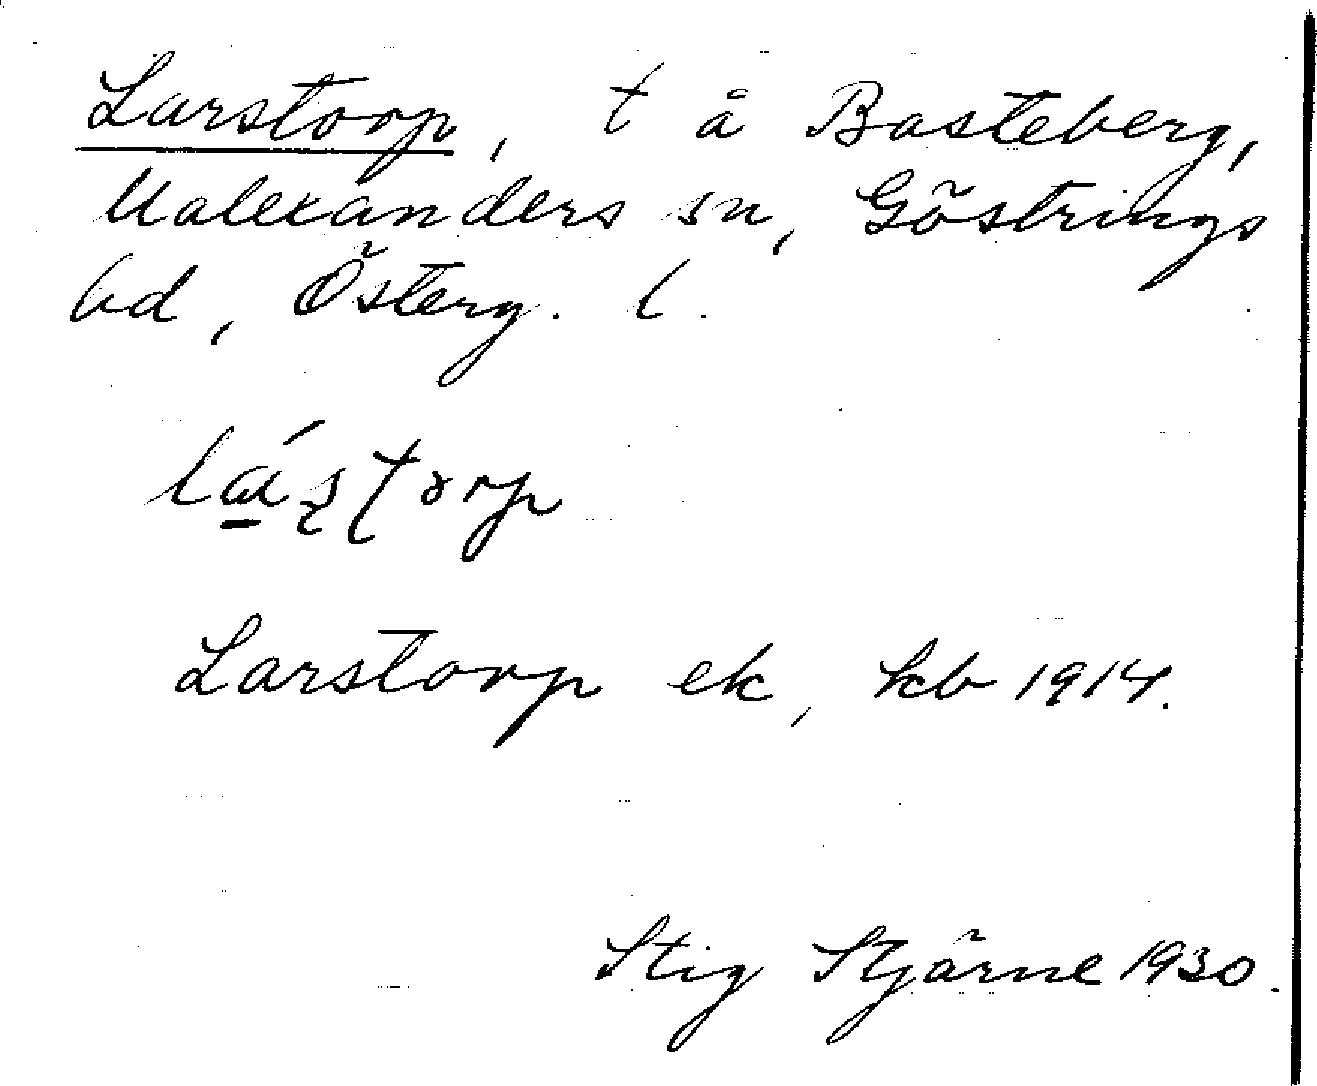 Larstorp, t å Basteberg,
Ualexanders sn, Göstrings
hd, Österg. l.
lá̱ʂʈorp
Larstorp ek, kb 1914.
Stig Stjärne 1930.